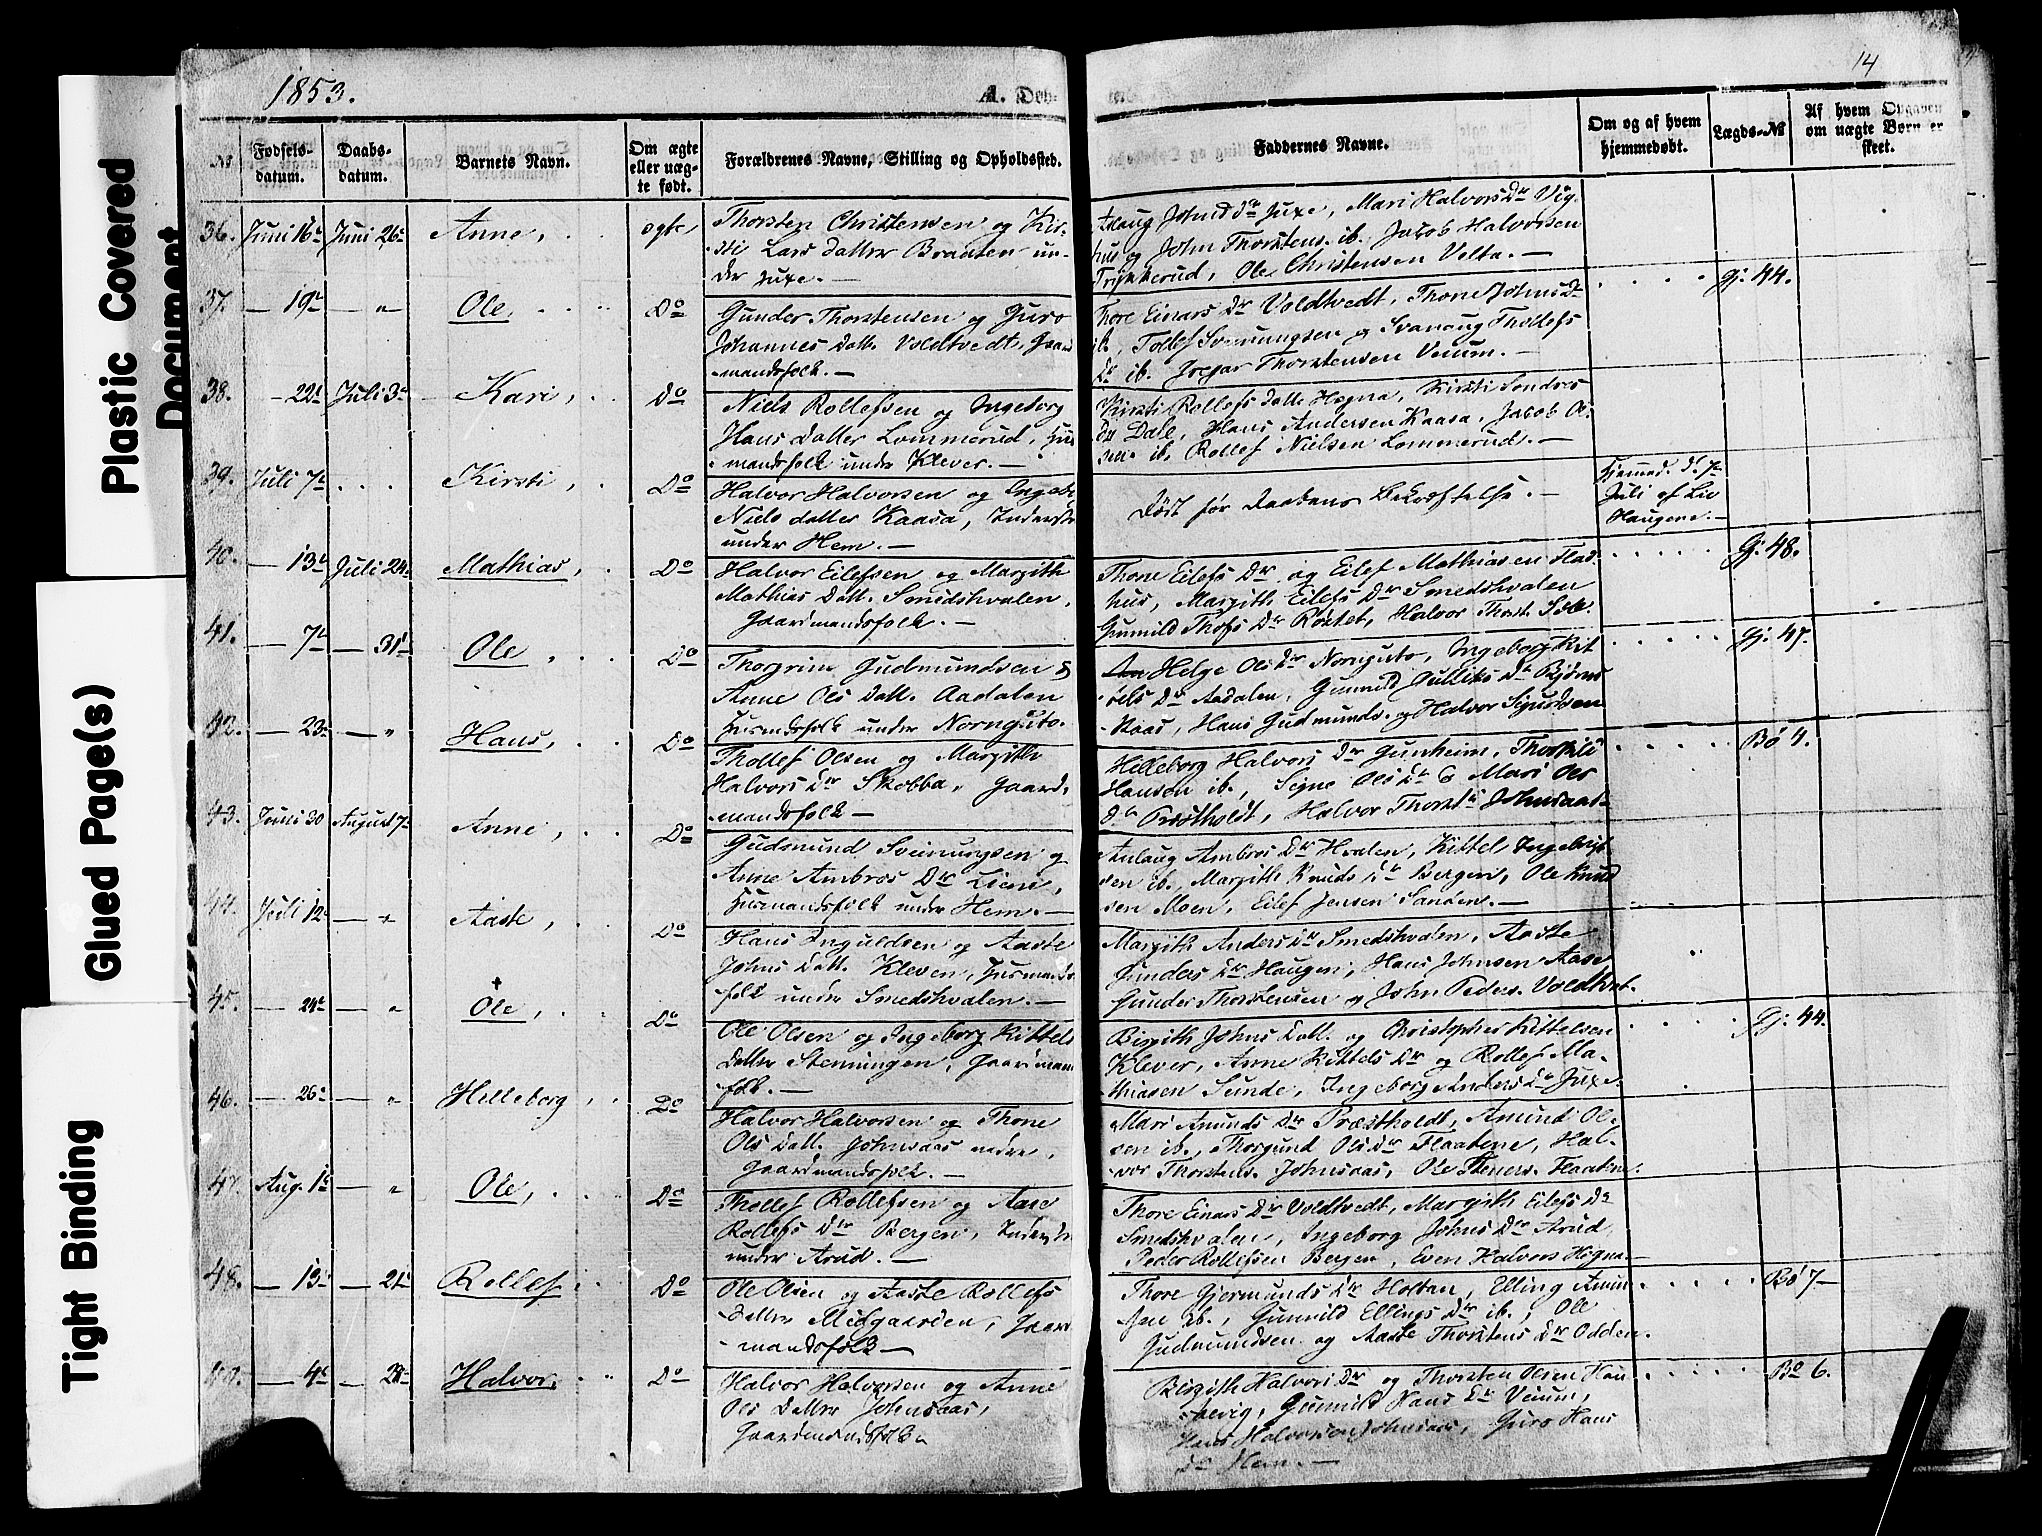 Plastic Covered
Document
Glued Page(s)
Tight Binding
1853.
A. Døb-
14
№
Fødsels-
datum.
Daabs-
datum.
Barnets Navn.
Om ægte
eller uæg-
te født.
Forældrenes Navne, Stilling og Opholdssted.
Faddernes Navne.
Om og af hvem
hjemmedøbt.
Lægds-№
Af hvem Opgaven
om uægte Børn er
skeet.
36. Juni 16de Juni 26de Anne, ægte
Thorsten Christensen og Kir-
sti Lars Datter Braaten un-
der Juxe. —
Aslaug Johns dr Juxe, Mari Halvors Dr Vig-
hus og John Thorstens. ib. Jacob Halvorsen
Trykkerud, Ole Christensen Velta. —
37. — 19de — „ Ole, Do
Gunder Thorstensen og Guro
Johannes Datt. Voldtvedt, Gaard
mandsfolk. —
Thore Einars Dr Voldtvedt, Thone Johns Dr
ib., Tollef Svenungsen og Svanaug Thollefs
Dr ib. Gregar Thorstensen Venum. —
Gj. 44.
38. — 22de Juli 3de Kari, Do
Niels Rollefsen og Ingeborg
Hans Datter Lommerud, Huus
mandsfolk under Klever. —
Kirsti Rollefs Datt. Hogna, Kirsti Sondres
Dr Dale, Hans Andersen Kaasa, Jacob Ol-
sen ib. Rollef Nielsen Lommerud. —
39. Juli 7de . . . Kirsti, Do
Halvor Halvorsen og Ingeb.
Niels datter Kaasa, Inderster
under Hem. —
Død før Daabens Bekræftelse. —
Hjemmed. d. 7de
Juli af Liv
Haugene. —
40. — 13de Juli 24de Mathias, Do
Halvor Eilefsen og Margith
Mathias Datt. Smedshvalen,
Gaardmandsfolk. —
Thone Eilefs Dr og Eilef Mathiasen Flad-
hus, Margith Eilefs Dr Smedshvalen
Gunnild Thofs Dr Røstet, Halvor Thorst.
Gj. 48.
41. — 7de — 31te Ole, Do
Thorgrim Gudmundsen &
Anne Ols Datt. Aadalen
Husmandsfolk under Nornguto.
Helge Ols Dr Nornguto, Ingeborg Kit
tels Dr Aadalen, Gunnild Gulliks Dr Bjørns
kaas, Hans Gudmunds. og Halvor Sigurdsen
Gj. 47.
42. — 23de — „ Hans, Do
Thollef Olsen og Margith
Halvors Dr Skobba, Gaard-
mandsfolk —
Helleborg Halvors Dr Gunheim, Thorkil
Hansen ib., Signe Ols Dr & Mari Ols
Dr Præstholdt, Halvor Thorst. Johnsaas.
Bø 4.
43. Juni 30 August 7de Anne, Do
Gudmund Sveinungsen og
Anne Ambros Dr Liene,
Husmandsfolk under Hem. —
Aslaug Ambros Dr Hvalen, Kittel Ingebrigt
sen ib., Margith Knuds Dr Bergen, Ole Knud
sen Moen, Eilef Jensen Sanden. —
44. Juli 12te — „ Aaste, Do
Hans Inguldsen og Aaste
Johns Datt. Kleven, Husmands
folk under Smedshvalen. —
Margith Anders Dr Smedshvalen, Aaste
Gunders Dr Haugen, Hans Johnsen Aase
Gunder Thorstensen og John Peders. Voldtvet.
45. — 24de — „ Ole, Do
Ole Olsen og Ingeborg Kittels
Datter Stenningen, Gaardmans
folk. —
Birgith Johns Datt. og Christopher Kittelsen
Klever, Anne Kittels Dr og Rollef Ma-
thiasen Sunde, Ingeborg Anders Dr Juxe.
Gj. 44.
46. — 26de — „ Helleborg, Do
Halvor Halvorsen og Thone
Ols Datt. Johnsaas nedre,
Gaardmandsfolk. —
Mari Amunds Dr Præstholdt, Amund Ol-
sen ib., Thorgund Ols Dr Flaatene, Hal-
vor Thorstens. Johnsaas, Ole Steners. Flaaten.
47. Aug. 1ste — „ Ole, Do
Thollef Rollefsen og Aase
Rollefs Dtr Bergen, Inderster
under Arud. —
Thore Einars Dtr Voldtvedt, Margith Eilefs Dr
Smedshvalen, Ingeborg Johns Dtr Arud
Peder Rollefsen Bergen, Even Halvors Hogna. —
48. — 13de — 21de Rollef, Do
Ole Olsen og Aaste Rollefs
Datter Midgaarden, Gaard
mandsfolk —
Thore Gjermunds Dr Holtan, Elling Amun
sen ib., Gunnild Ellings Dr ib., Ole
Gudmundsen og Aaste Thorstens Dr Odden.
Bø 7 —
49. — 4de — 28de Halvor, Do
Halvor Halvorsen og Anne
Ols Datter Johnsaas,
Gaardmandsfolk
Birgith Halvors Dr og Thorsten Olsen Hau
Gunnild Hans Dr Venum,
Hans Halvorsen Johnsaas, Guro Hans
Dr Hem. —
Bø 6.